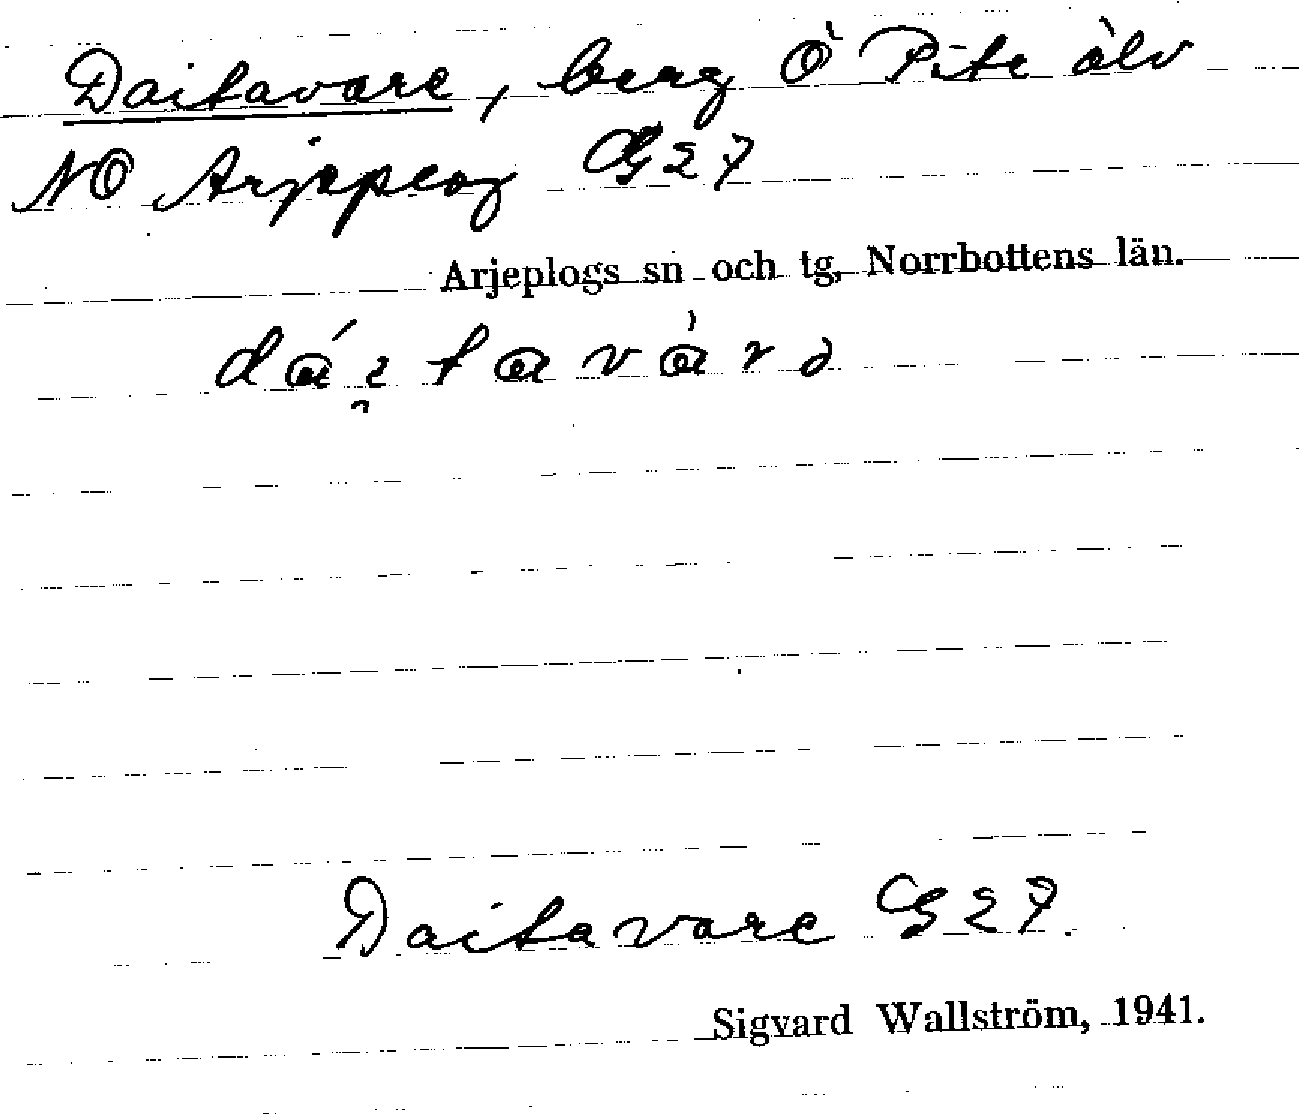 Daitavare, berg Ö Pite älv
NO Arjeplog G27
Arjeplogs sn och tg, Norrbottens län.
Daitavare G27.
Sigvard Wallström, 1941.